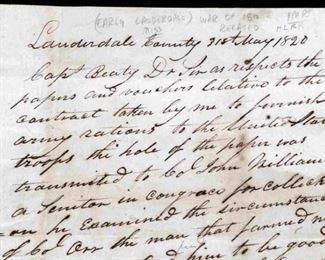 (EARLY LAUDERDALE) WAR OF 1812
MISS
Lauderdale County 31st May 1820
Capt Beaty Dr Sir as respects the
papers and vouchers relative to the
contract taken by me to furnish
army rations to the United Stat
troops the hole of the paper was
transmitted to Col John William
a Senitor in congrace for collect
on he Examined the circumstan
of Col Orr the man that farmed
him to be good